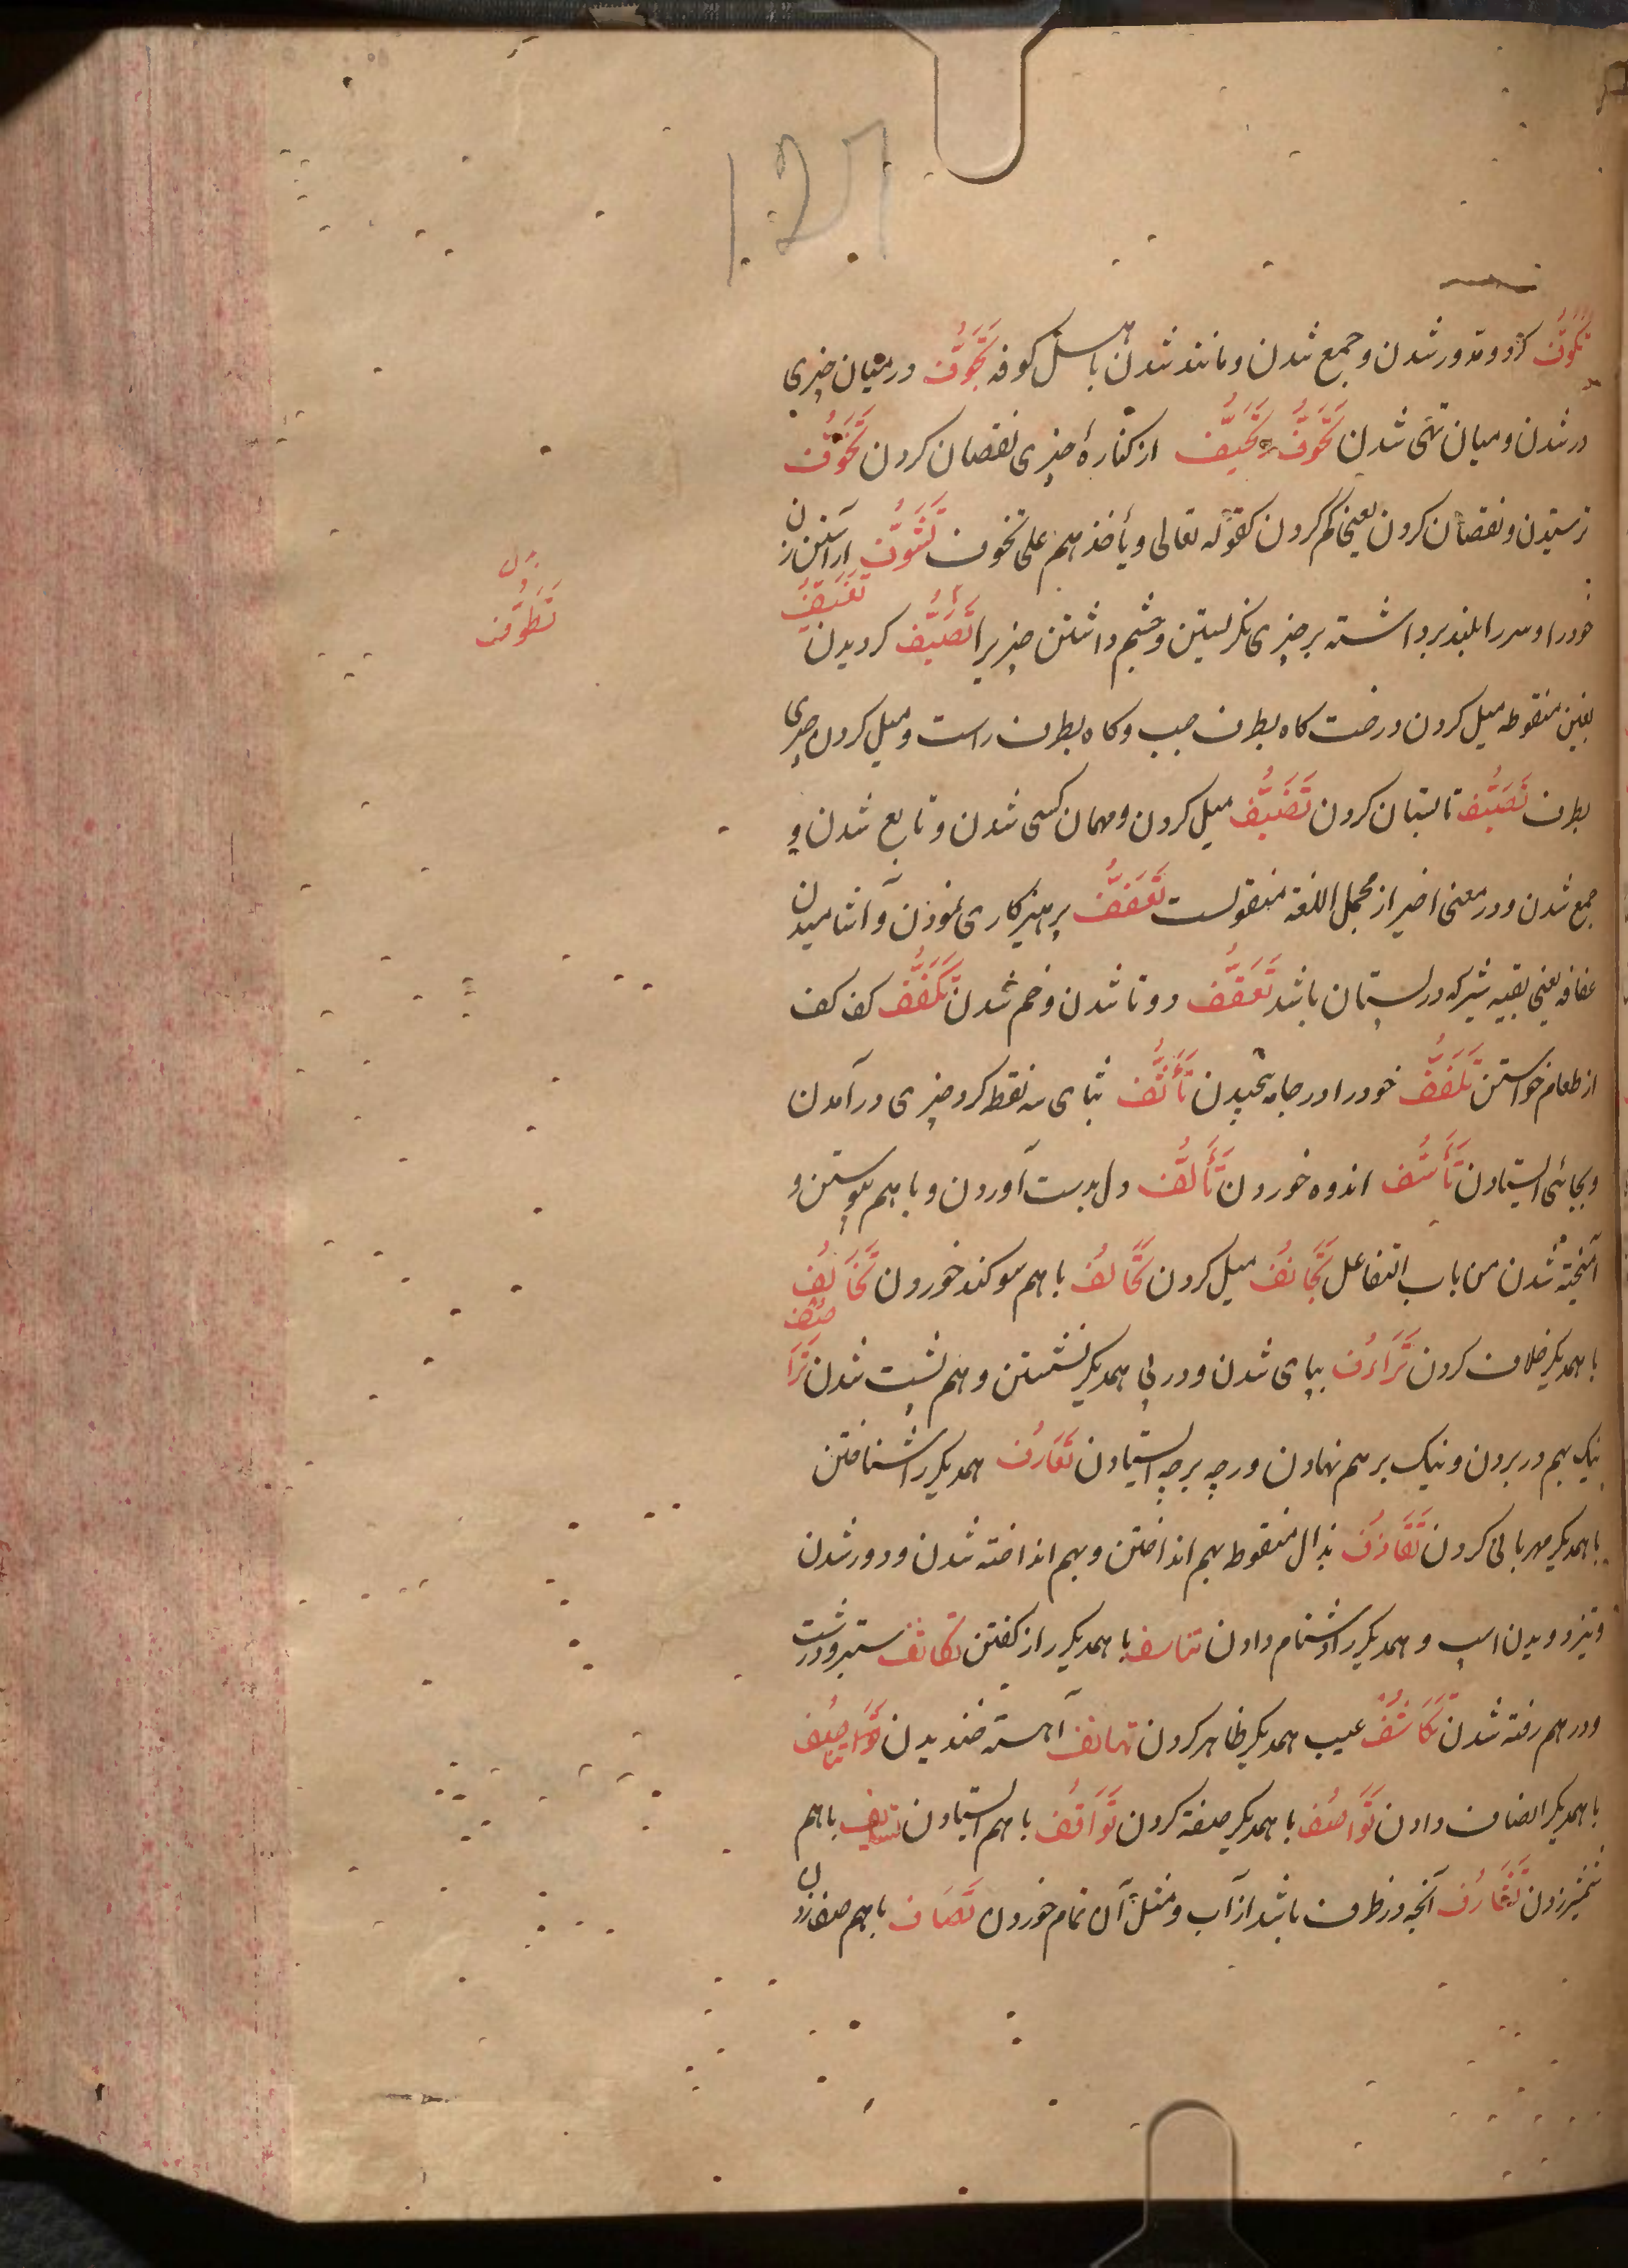 تَكَوُّف كرد و مدور شدن و جمع شدن و مانند شدن باهل كوفه تَجَوُّف در ميان چيزى
در شدن و ميان تهى شدن تَحَوُّف و تَحَيُّف از كنارهٔ چيزى نقصان كردن تَخَوُّف
ترسيدن و نقصان كردن يعنى كم كردن كقوله تعالى و يأخذهم على تخوف تَشَوُّف آراستن زن
خود را و سر را بلند برداشته بر چيزى نگريستن و چشم داشتن چيزيرا تَصَيُّف گرديدن تَغَيُّف
بغين منقوطه ميل كردن درخت گاه بطرف چپ و گاه بطرف راست و ميل كردن چيزى
بطرف تَصَيُّف تابستان كردن تَضَيُّف ميل كردن و مهمان كسى شدن و تابع شدن و
جمع شدن و در معنى اخير از مجمل اللغة منقولست تَعَفُّف پرهيزكارى نمودن و آشاميدن
عفافه يعنى بقيه شير كه در پستان باشد تَعَقُّف دوتا شدن و خم شدن تَكَفُّف كف كف
از طعام خواستن تَلَفُّف خود را در جامه پيچيدن تَأَثُّف بثاى سه نقط گرد چيزى درآمدن
و بجائى ايستادن تَأَسُّف اندوه خوردن تَأَلُّف دل بدست آوردن و با هم پيوستن و
آميخته شدن من باب التفاعل تَجَانُف ميل كردن تَحَالُف با هم سوگند خوردن تَخَالُف
با همديگر خلاف كردن تَرَادُف بپاى شدن و در پى همديگر نشستن و هم پشت شدن تَرَاصُف
نيك بهم در بردن و نيك بر هم نهادن و رچه بر چه ايستادن تَعَارُف همديگر را شناختن
با همديگر مهربانى كردن تَقَاذُف بذال منقوط بهم انداختن و بهم انداخته شدن و دور شدن
و تيز دويدن اسپ و همديگر را دشنام دادن تناسف با همديگر راز گفتن تكاثف ستبر و درشت
و در هم رفته شدن تَكَاشُف عيب همديگر ظاهر كردن تهانف آهسته خنديدن
با همديگر انصاف دادن تَوَاصُف با همديگر صفة كردن تَوَاقُف با هم ايستادن تسايف با هم
شمشير زدن تَغَارُف آنچه در ظرف باشد از آب و مثل آن تمام خوردن تَصَاف با هم صف زدن
بدل
تَطَوُّف